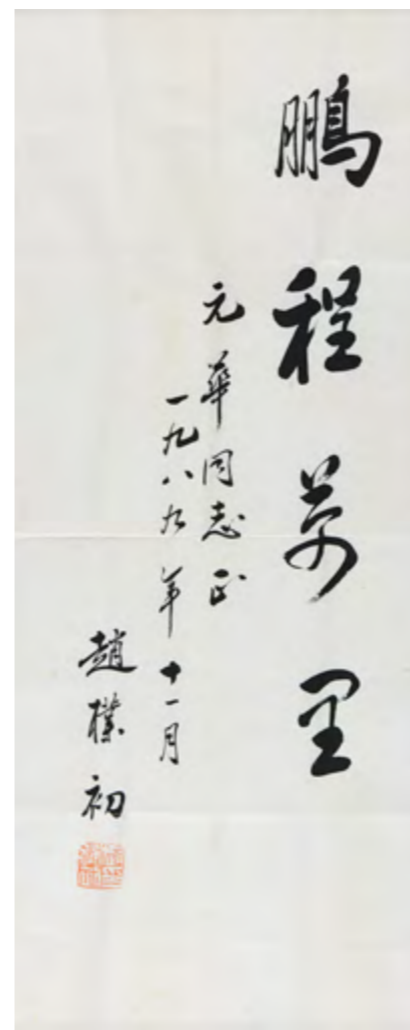 鵬程萬里
元華同志正
一九八九年十一月
趙樸初